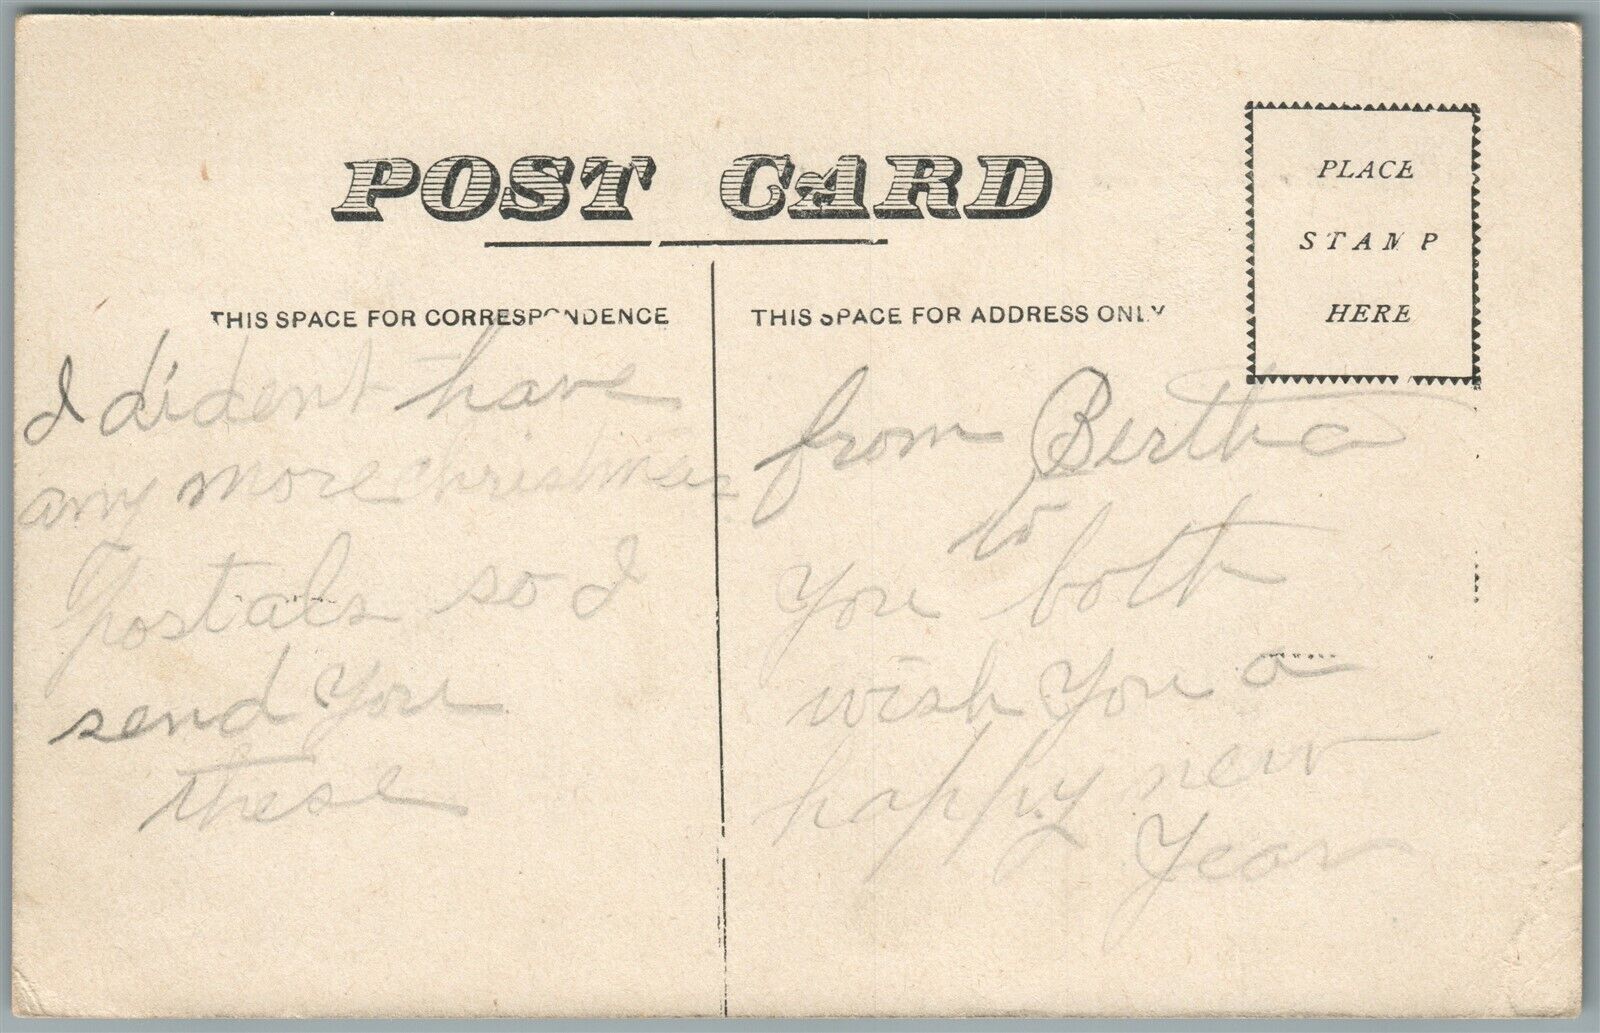 POST CARD
THIS SPACE FOR CORRESPONDENCE
I dident have
any more christmas
Postals so I
send you
these
THIS SPACE FOR ADDRESS ONLY
PLACE
STAMP
HERE
from Bertha
to
you both
wish you a
happy new
Year